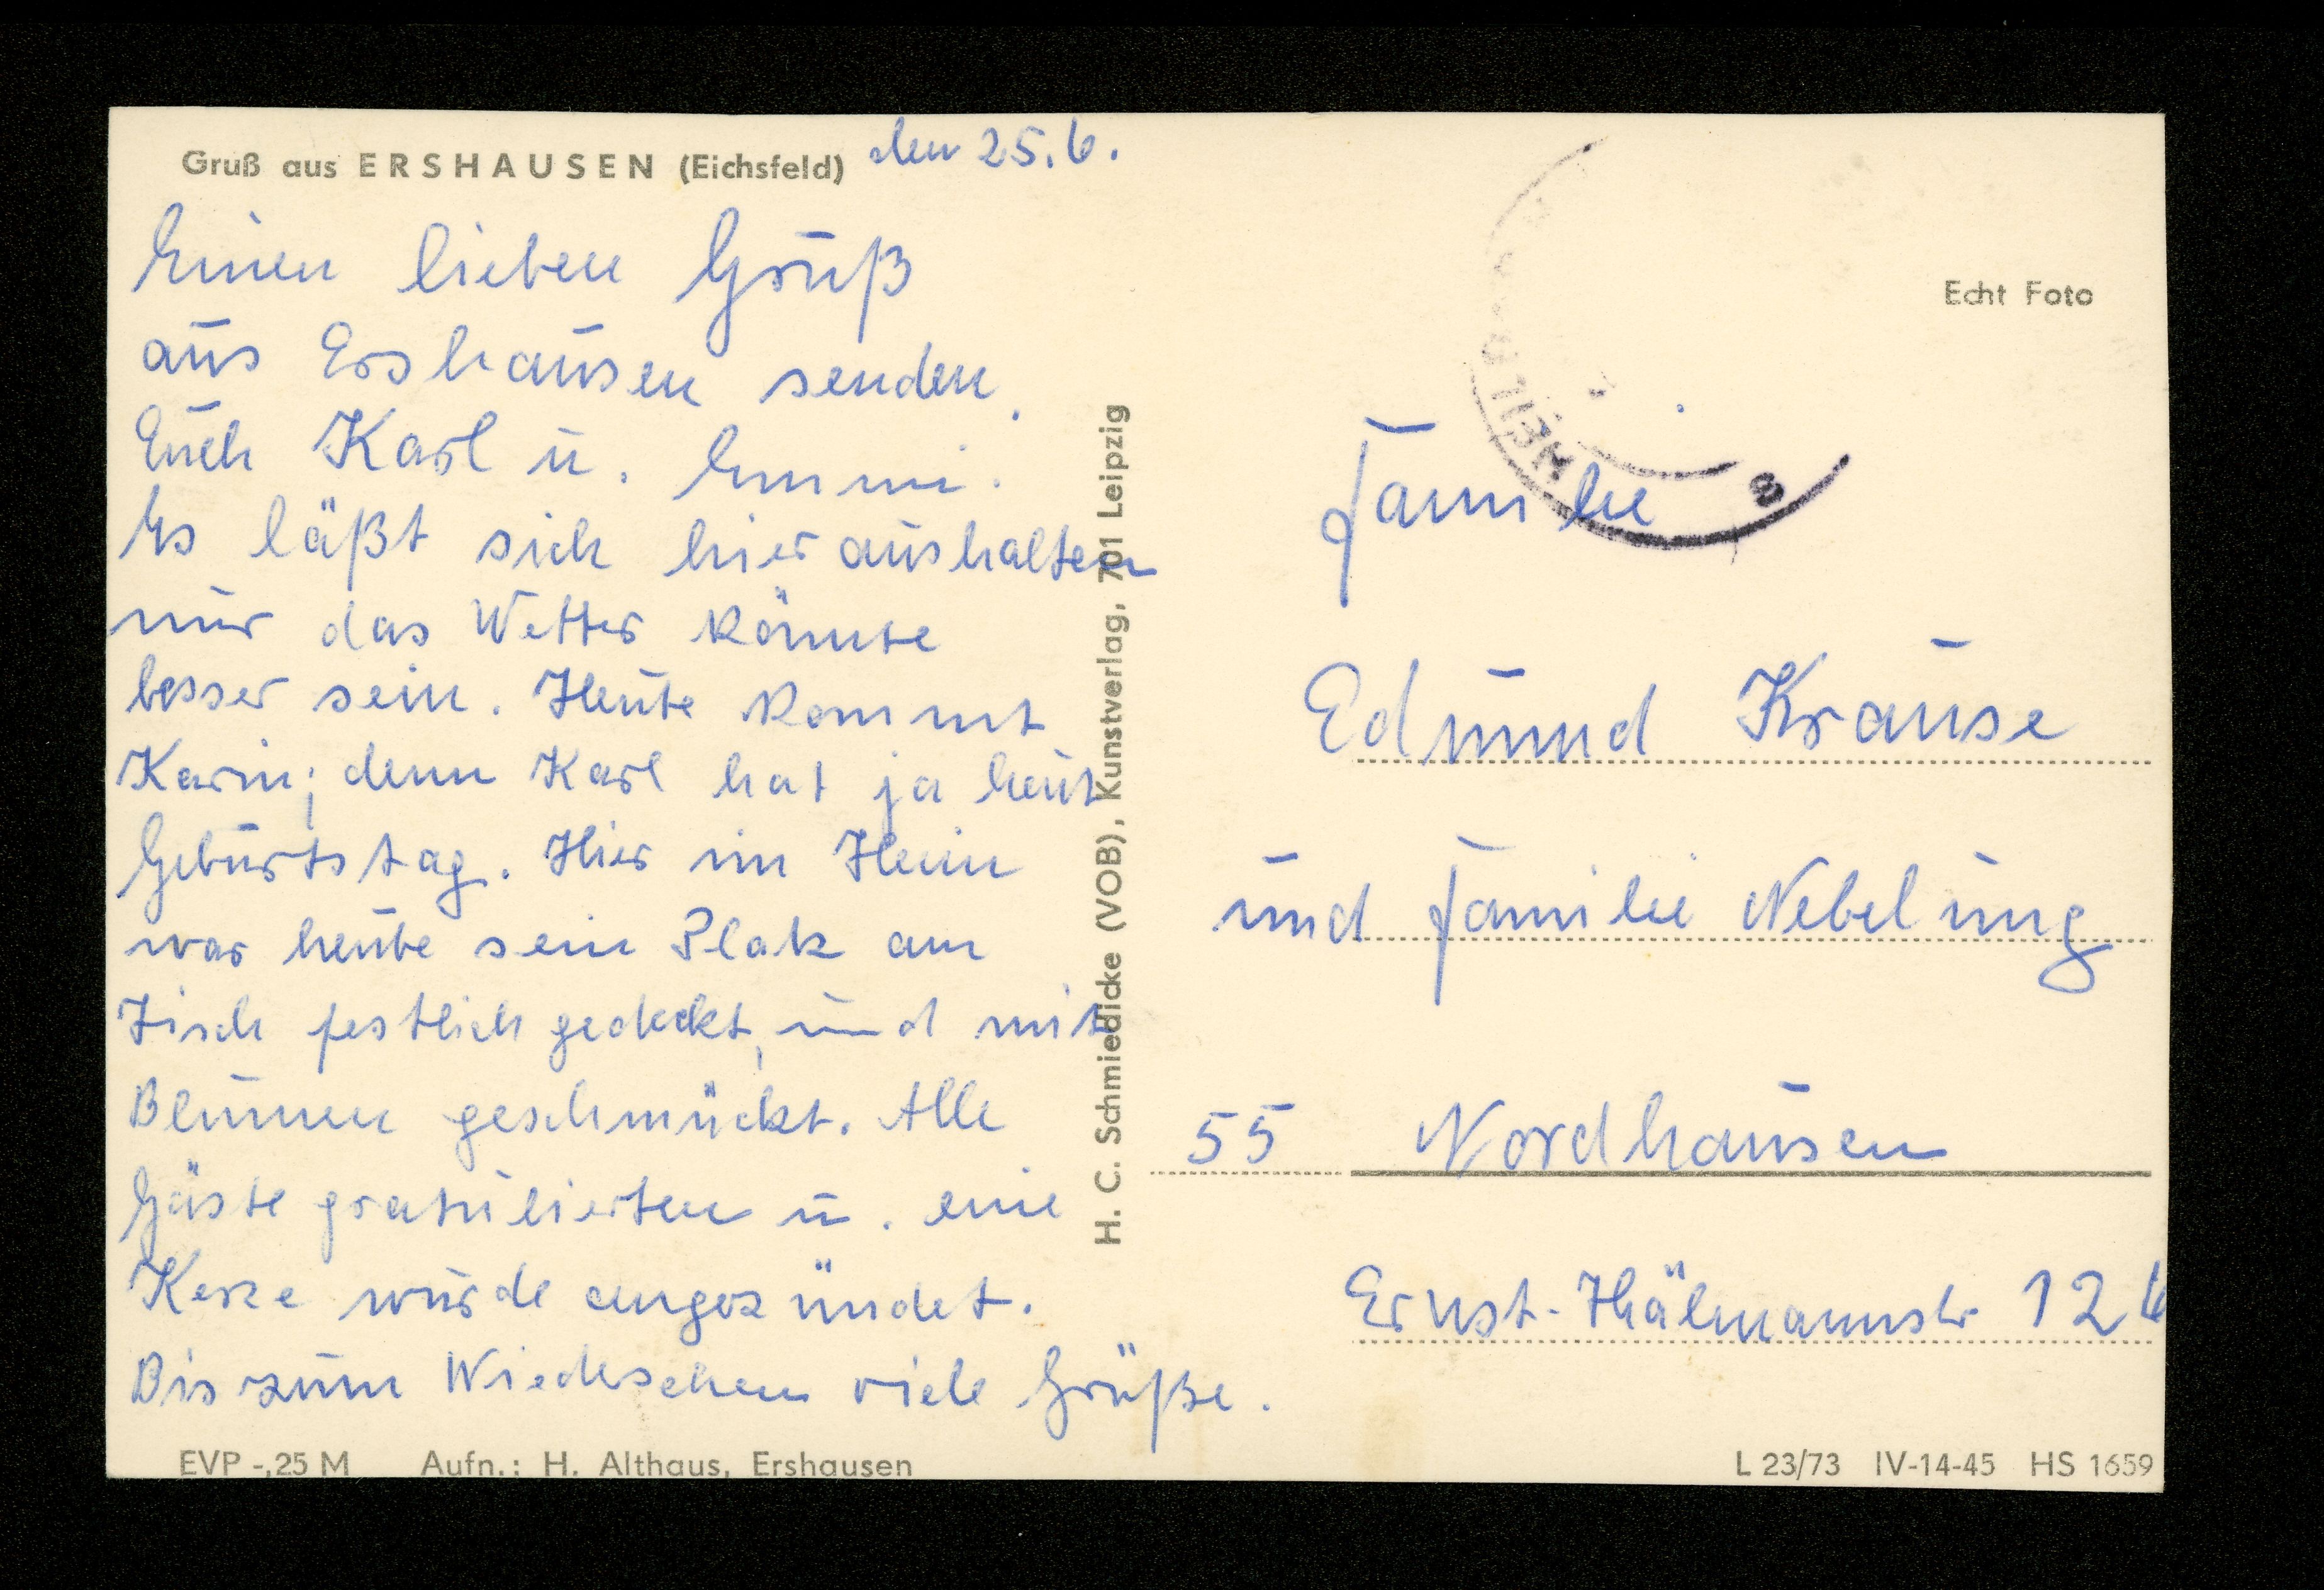 Gruß aus ERSHAUSEN (Eichsfeld) den 25.6.
Einen lieben Gruß
aus Ershausen senden
Euch Karl u. Emmi.
Es läßt sich hier aushalten
nur das Wetter könnte
besser sein. Heute kommt
Karin; denn Karl hat ja heut
Geburtstag. Hier im Heim
war heute sein Platz am
Tisch festlich gedeckt, und mit
Blumen geschmückt. Alle
Gäste gratulierten u. eine
Kerze wurde angezündet.
Bis zum Wiedersehen viele Grüße.
EVP -,25 M Aufn.: H. Althaus, Ershausen
H. C. Schmiedicke (VOB), Kunstverlag, 701 Leipzig
Echt Foto
Familie
Edmund Krause
und Familie Nebelung
55 Nordhausen
Ernst-Thälmannstr 126
L 23/73 IV-14-45 HS 1659